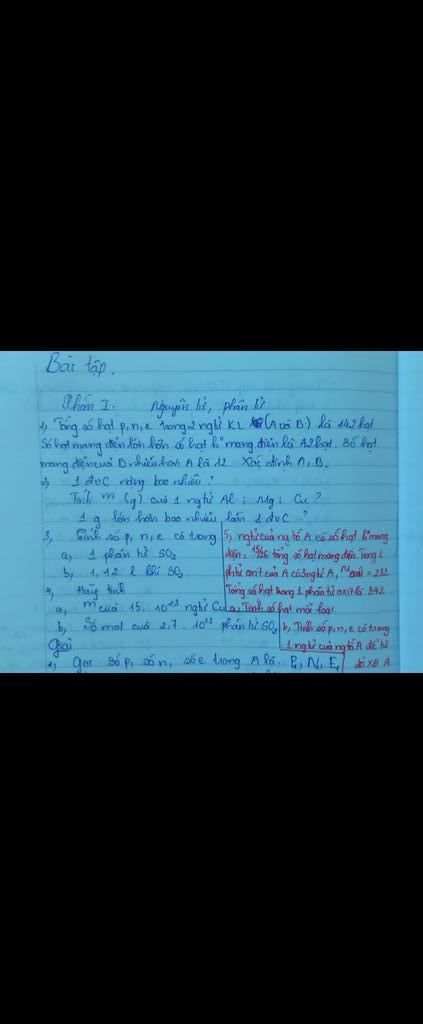 Bài tập.
Phần I. Nguyên tử, phân tử
1) Tổng số hạt p, n, e trong 2 ngtử KL (A và B) là 142 hạt
Số hạt mang điện lớn hơn số hạt k° mang điện là 42 hạt. Số hạt
mang điện của B nhiều hơn A là 12 Xác định A, B.
2) 1 đvC nặng bao nhiêu?
Tính m (g) của 1 ngtử Al; Mg; Cu?
1 g lớn hơn bao nhiêu lần 1 đvC?
3, Tính số p, n, e có trong
a, 1 phân tử SO2
b, 1,12 l khí SO2
4, Hãy tính
a, m của 15. 10^-13 ngtử Cu
b, Số mol của 2,7. 10^13 phân tử SO2
Giải
1) Gọi số p, số n, số e trong A là P1, N1, E1
5) ngtử của ng tố A có số hạt k° mang
điện = 15/26 tổng số hạt mang điện. Trong 1
phtử oxit của A có 3 ngtử A, M oxit = 232
Tổng số hạt trong 1 phân tử oxit là 342
a, Tính số hạt mỗi loại.
b, Tính số p, n, e có trong
1 ngtử của ng tố A để từ
đó xđ A